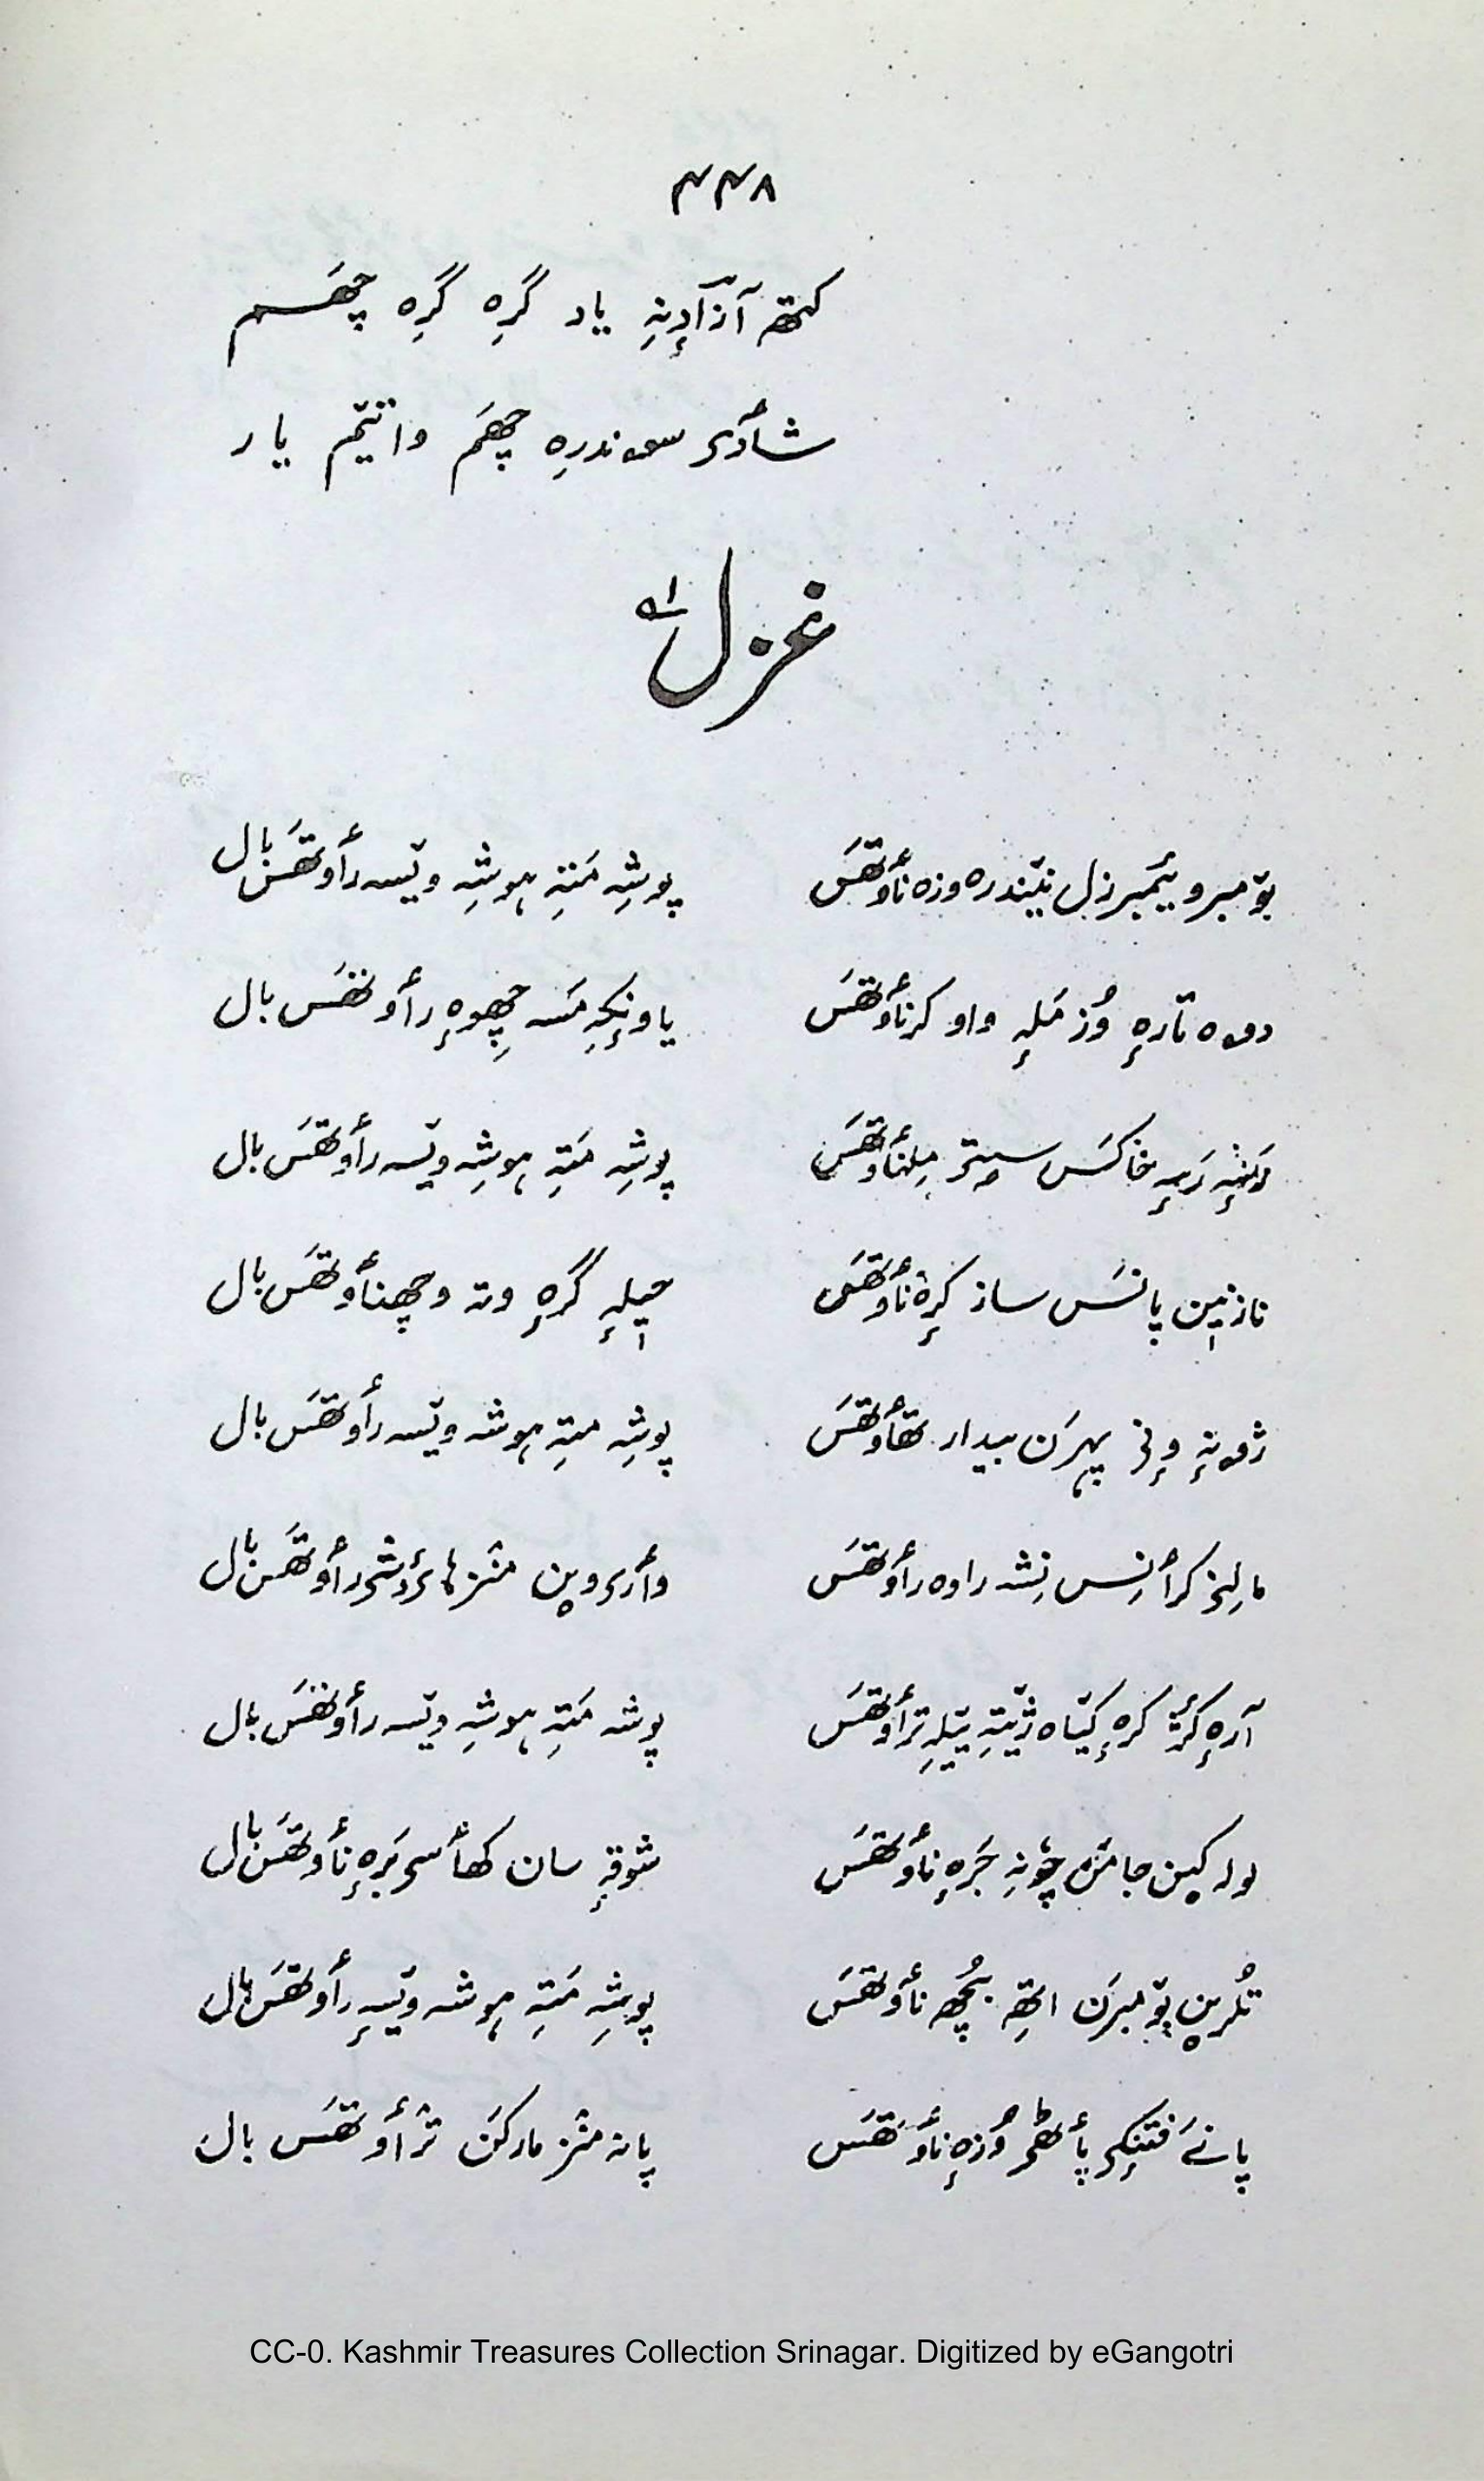 ۴۴۸
کتھ آزٲدِنہِ یاد گرِہ گرِہ چھَم
شٲدی سوندرِہ چھَم واتیٚم یار
غزل
بوٚمبرو یٔمبرزل نیٚندرہ وزہ نٲوتھَس
پوشِہ مَتہِ ہوشِہ ویٚسہ رٲوتھَس بال
دوہ تارہٕ وُزمَلہٕ واو کرنٲوتھَس
یاونٕکہِ مَسہ چھِوہٕ رٲوتھَس بال
رَہہٕ خاکَس سٟتۍ مِلنٲوتھَس
پوشِہ مَتہِ ہوشِہ ویٚسہ رٲوتھَس بال
نازنیٖن پانَس ساز کرٕہ نٲوتھَس
حیٖلہٕ گرٕہ وتہ وچھنٲوتھَس بال
ژونہٕ وٕنۍ پہرَن بیدار تھٲوتھَس
پوشِہ متہِ ہوشہ ویٚسہ رٲوتھَس بال
مالِنۍ کرٲنِس نِشہ راوہ رٲوتھَس
وٲری وین منٛز رٲوتھَس بال
آرہٕ کٔژ کرٕہ کیٚاہ ژیٚتہِ تیٚلہِ ترٲوتھَس
پوشہ مَتہِ ہوشِہ ویٚسہ رٲوتھَس بال
لولہ کین جامَن چونہِ جَرہٕ نٲوتھَس
شوقہٕ سان کھٲسۍ بَرہٕ نٲوتھَس بال
تُلرین بوٚمبرَن اتھِہ بُچھہ نٲوتھَس
پوشِہ مَتہِ ہوشہ ویٚسہِ رٲوتھَس بال
پانَے فتنٕکۍ پٲٹھۍ وُزہٕ نٲوتھَس
پانہ منٛز مارکَن ترٲوتھَس بال
CC-0. Kashmir Treasures Collection Srinagar. Digitized by eGangotri